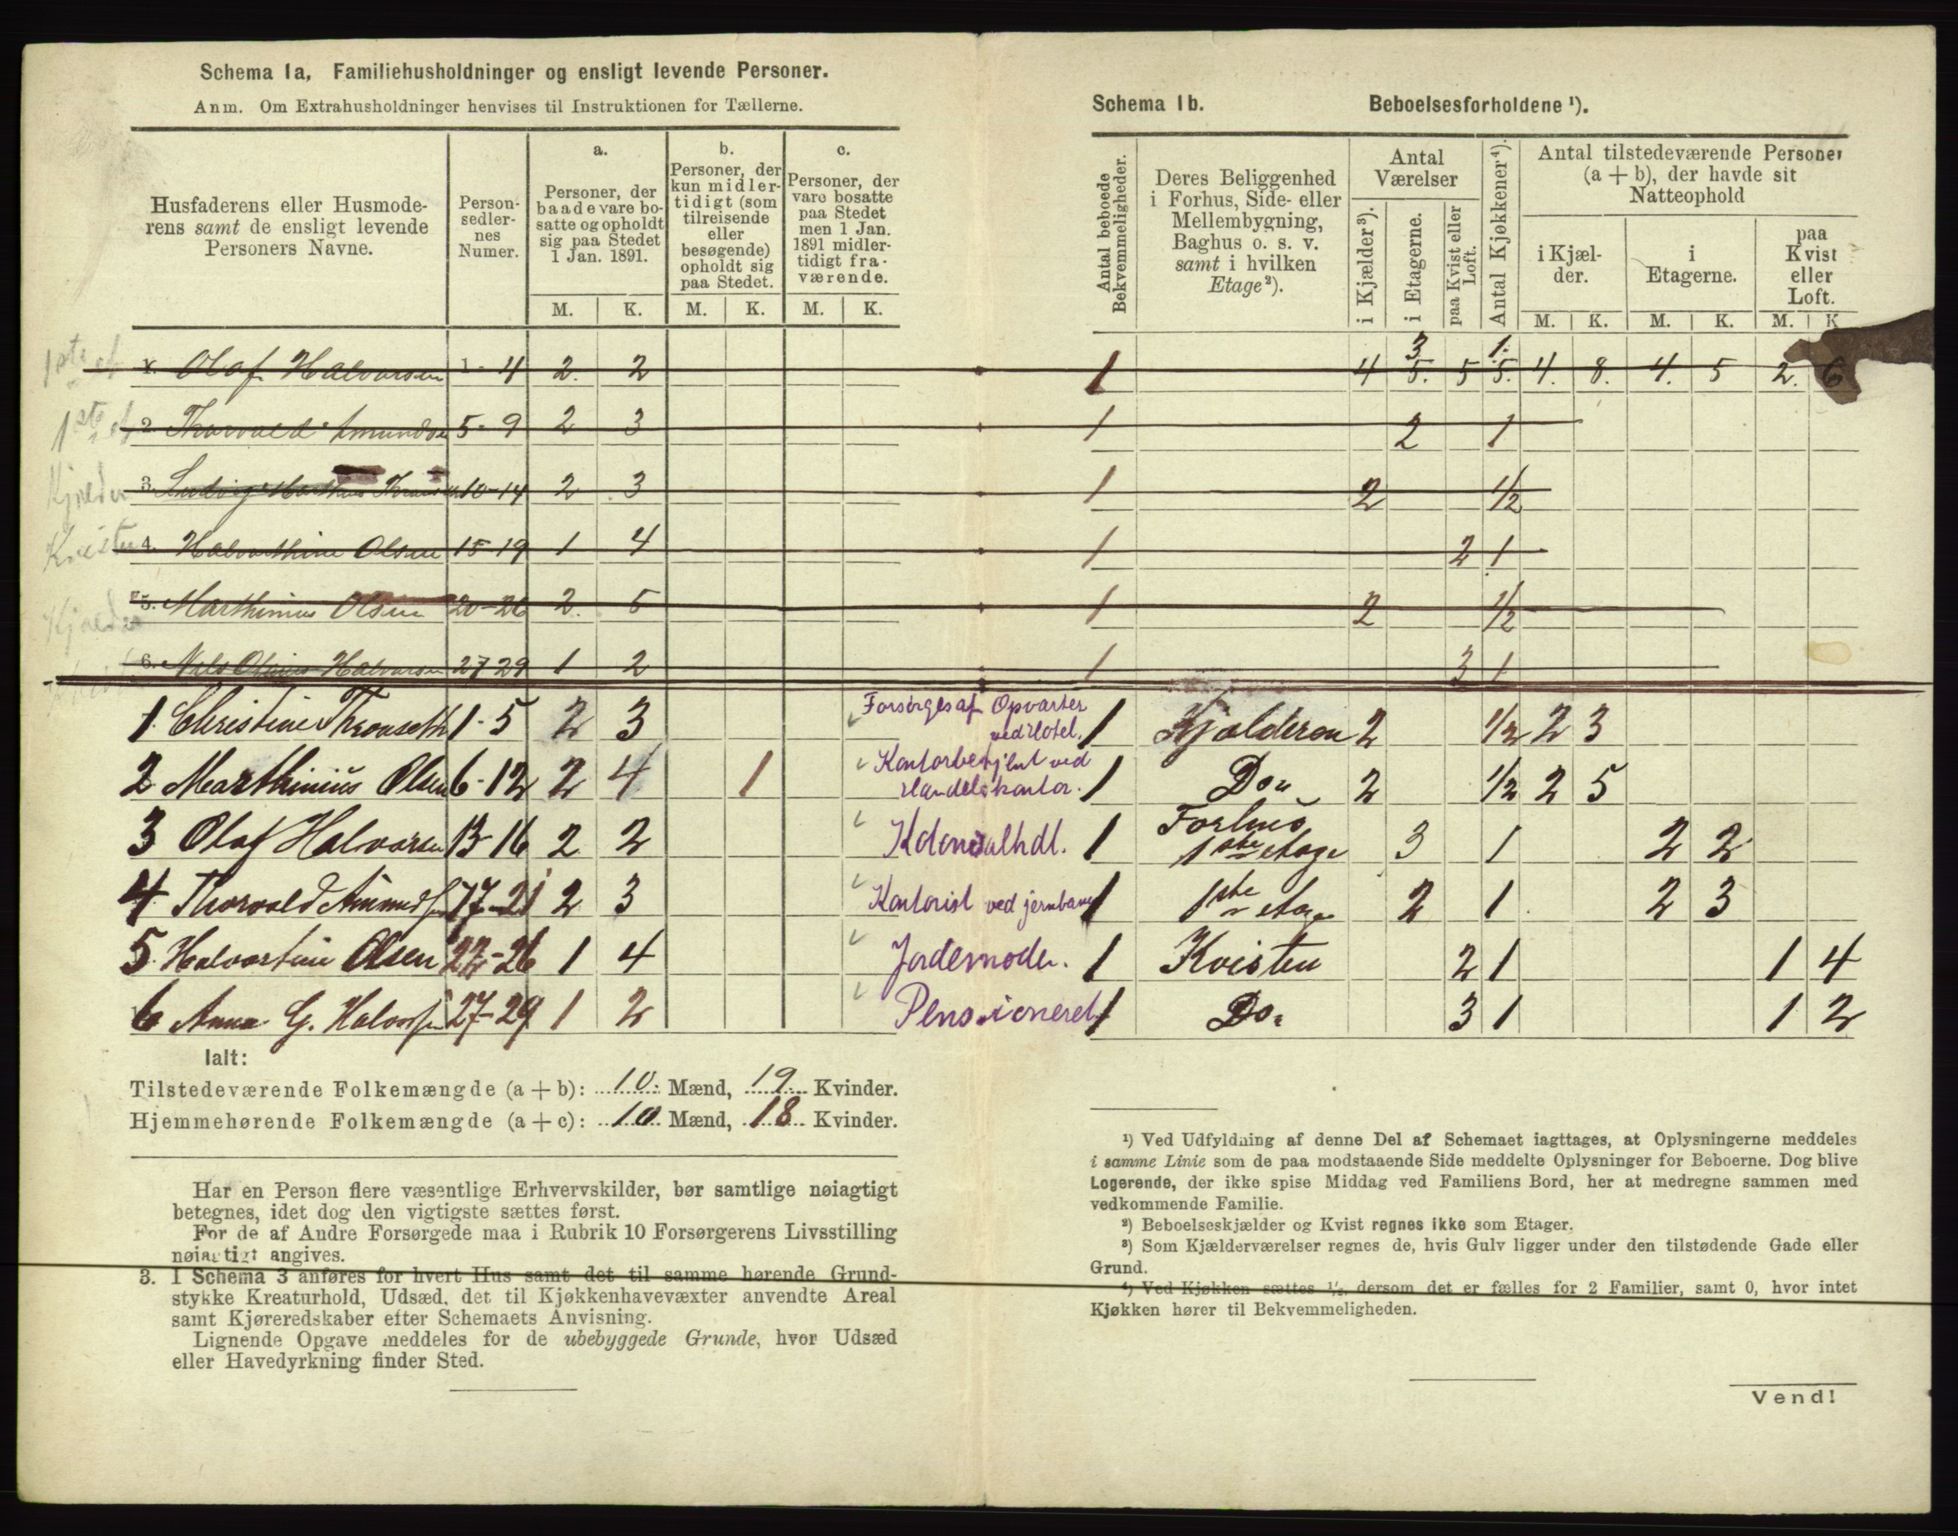 Schema 1a, Familiehusholdninger og ensligt levende Personer.
Anm. Om Extrahusholdninger henvises til Instruktionen for Tællerne.
Husfaderens eller Husmode-
rens samt de ensligt levende
Personers Navne.
Person-
sedler-
nes
Numer.
a.
Personer, der
baade vare bo-
satte og opholdt
sig paa Stedet
1 Jan. 1891.
b.
Personer, der
kun midler-
tidigt (som
tilreisende
eller
besøgende)
opholdt sig
paa Stedet.
c.
Personer, der
vare bosatte
paa Stedet
men 1 Jan.
1891 midler-
tidigt fra-
værende.
M. K. M. K. M. K.
1ste et 1. Olaf Halvorsen 1-4 2. 2
1ste et 2. Thorvald Amundsen 5-9 2 3
Kjælder 3. Ludvig Marthus 10-14 2 3
Kvisten 4. Halvarthine Olsen 15-19 1 4
Kjælder 5. Marthinius Olsen 20-26 2. 5
6. Nils Olinius Halvorsen 27-29 1 2
1. Christine Thronseth 1-5 2 3 Forsørges af Opvarter
ved Hotel.
2 Marthinius Olsen 6-12 2 4 1 Kontorbetjent ved
Handelskontor.
3 Olaf Halvorsen 13-16 2 2 Kolonialhdl.
4 Thorvald Amundsen 17-21 2 3 Kontorist ved jernbane
5 Halvortine Olsen 22-26 1 4 Jordemoder.
6 Anna G. Halvorsen 27-29 1 2 Pensioneret
Ialt:
Tilstedeværende Folkemængde (a + b): 10. Mænd, 19. Kvinder.
Hjemmehørende Folkemængde (a + c): 10 Mænd, 18 Kvinder.
Har en Person flere væsentlige Erhvervskilder, bør samtlige nøiagtigt
betegnes, idet dog den vigtigste sættes først.
For de af Andre Forsørgede maa i Rubrik 10 Forsørgerens Livsstilling
nøiagtigt angives.
3. I Schema 3 anføres for hvert Hus samt det til samme hørende Grund-
stykke Kreaturhold, Udsæd, det til Kjøkkenhavevæxter anvendte Areal
samt Kjøreredskaber efter Schemaets Anvisning.
Lignende Opgave meddeles for de ubebyggede Grunde, hvor Udsæd
eller Havedyrkning finder Sted.
Schema 1b. Beboelsesforholdene ¹).
Antal beboede
Bekvemmeligheder.
Deres Beliggenhed
i Forhus, Side- eller
Mellembygning,
Baghus o. s. v.
samt i hvilken
Etage²).
Antal
Værelser
i Kjælder³).
i Etagerne.
paa Kvist eller
Loft.
Antal Kjøkkener⁴).
Antal tilstedeværende Personer
(a + b), der havde sit
Natteophold
i Kjæl-
der.
i
Etagerne.
paa
Kvist
eller
Loft.
M. K. M. K. M. K
3 1.
1 4 5. 5 5. 4. 8. 4. 5 2. 6
1 2 1
1 2 1/2
1 2 1
1 2 1/2
1 3 1
1 Kjælderen 2 1/2 2 3
1 Do. 2 1/2 2 5
1 Forhus
1ste etage 3 1 2 2
1 1ste etage 2 1 2 3
1 Kvisten 2 1 1 4
1 Do. 3 1 1 2
¹) Ved Udfyldning af denne Del af Schemaet iagttages, at Oplysningerne meddeles
i samme Linie som de paa modstaaende Side meddelte Oplysninger for Beboerne. Dog blive
Logerende, der ikke spise Middag ved Familiens Bord, her at medregne sammen med
vedkommende Familie.
²) Beboelseskjælder og Kvist regnes ikke som Etager.
³) Som Kjælderværelser regnes de, hvis Gulv ligger under den tilstødende Gade eller
Grund.
⁴) Ved Kjøkken sættes ½, dersom det er fælles for 2 Familier, samt 0, hvor intet
Kjøkken hører til Bekvemmeligheden.
Vend!